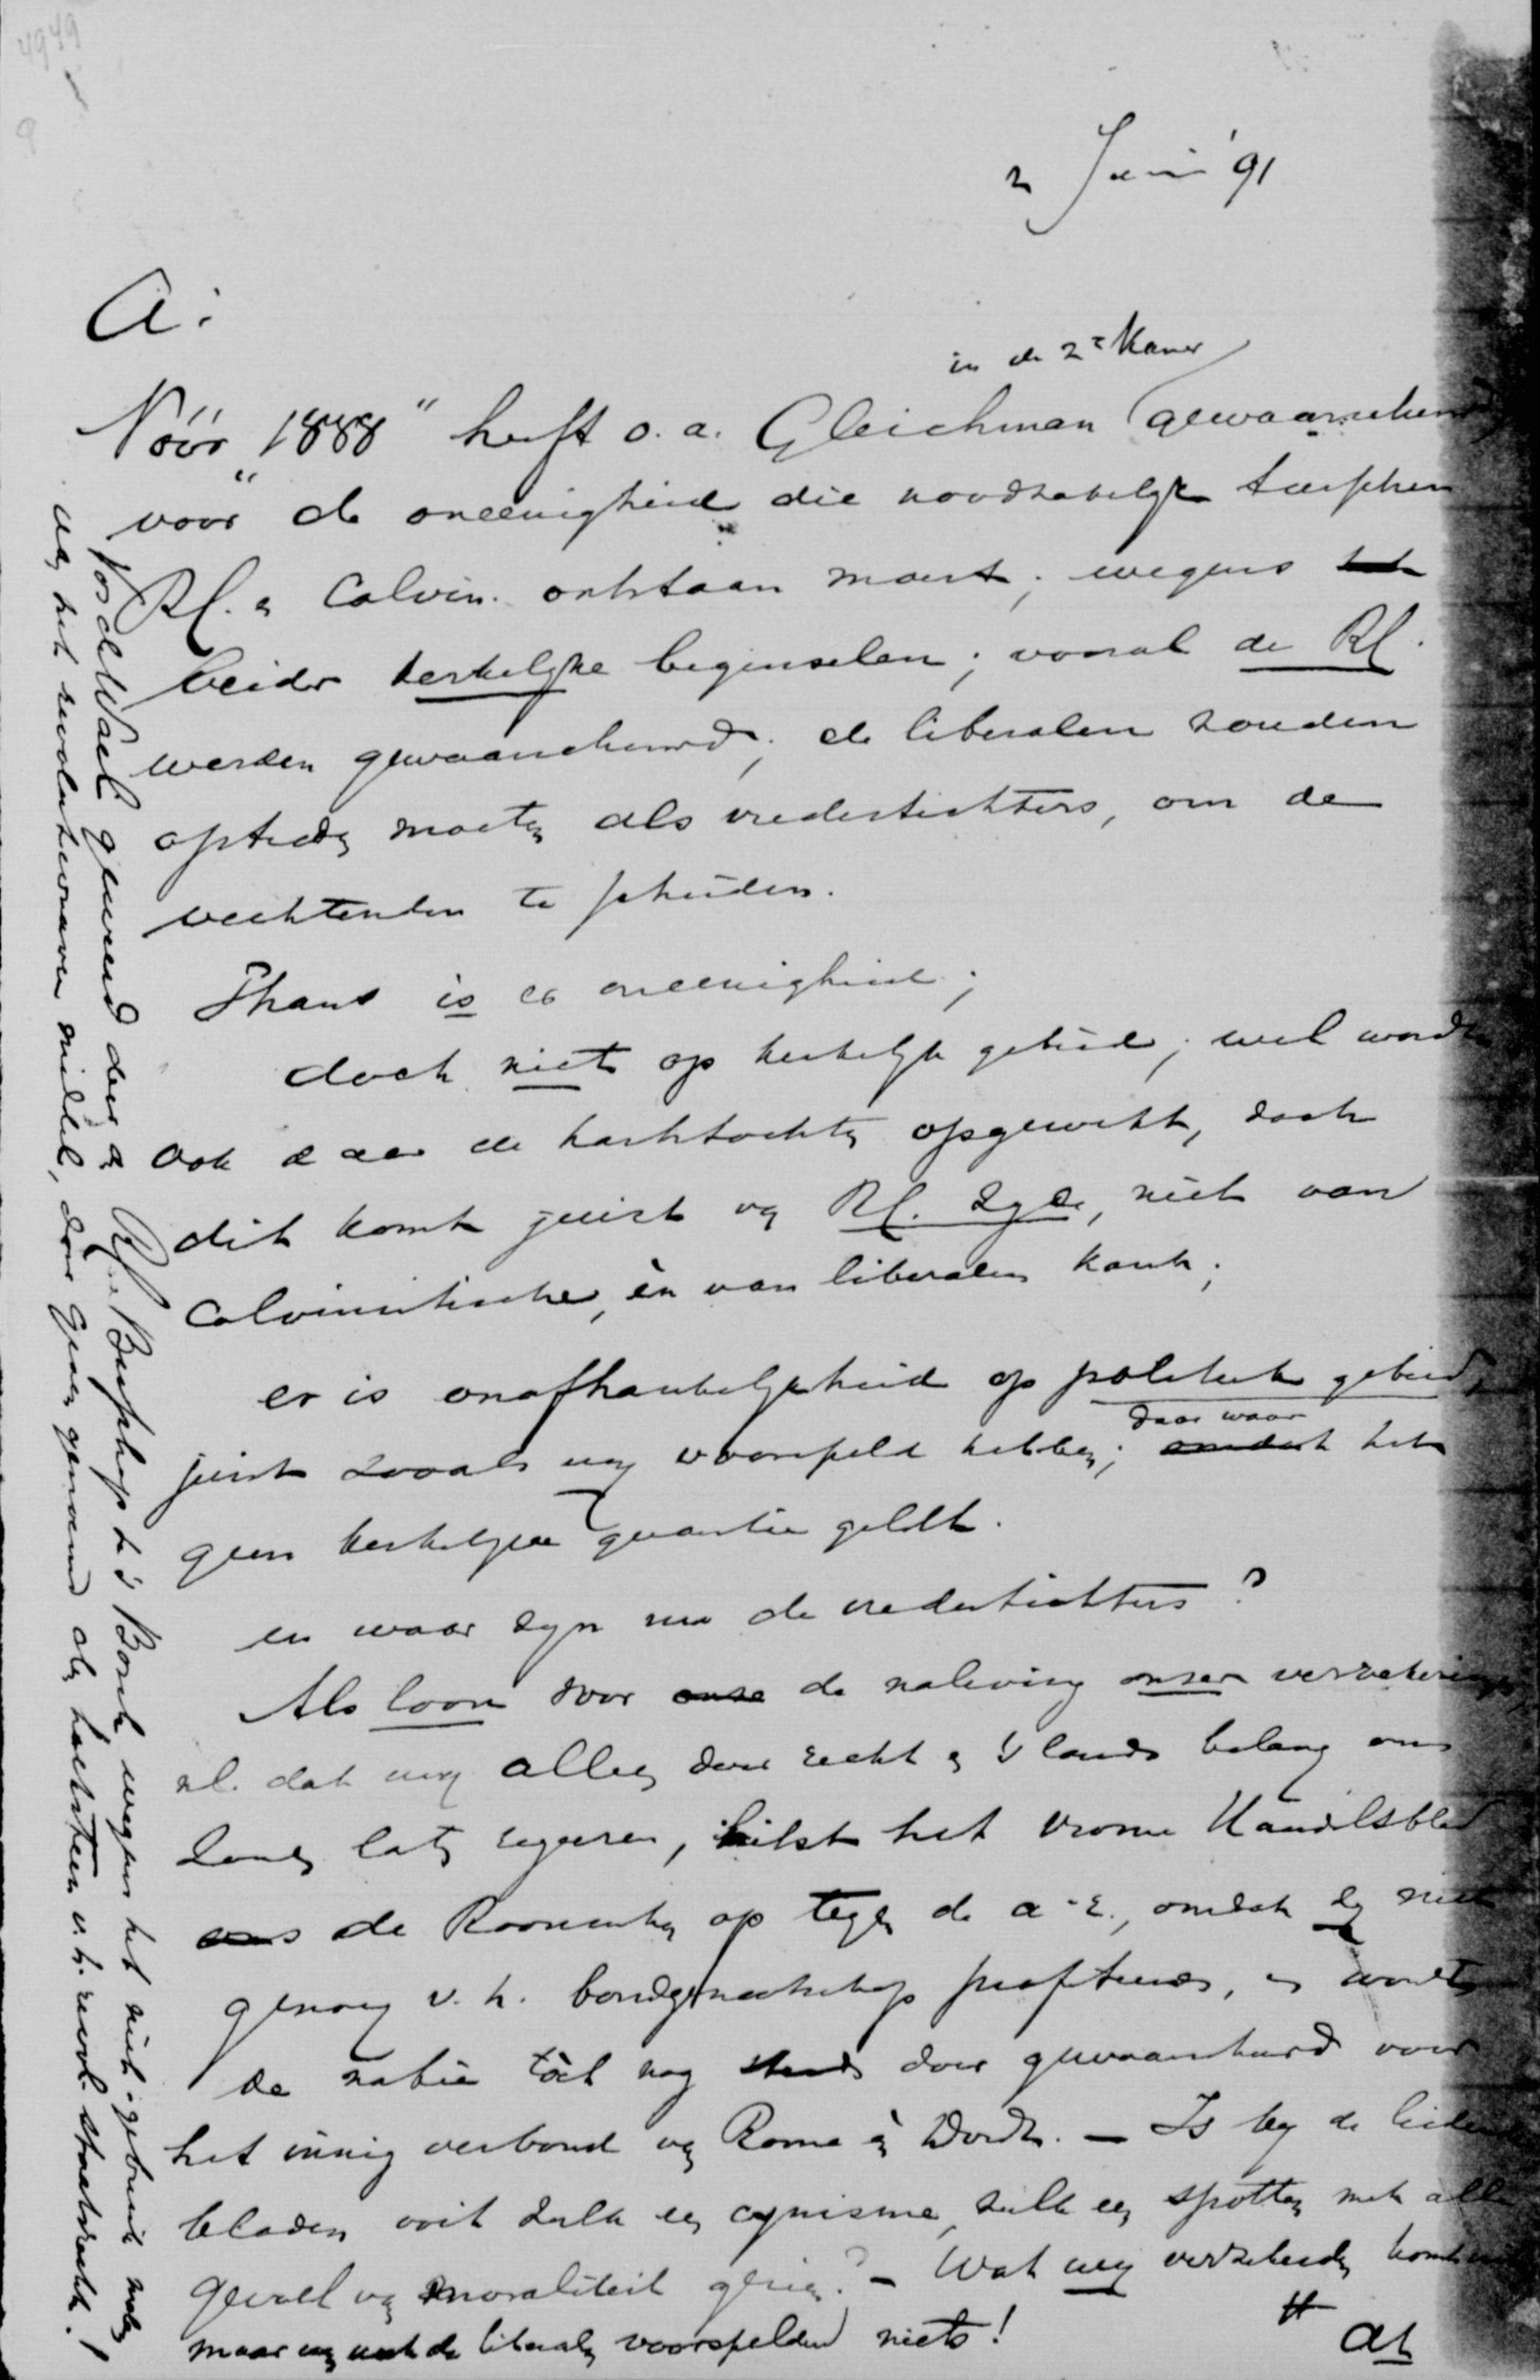 4949
2 Juni '91
A.
in de 2e Kamer
Vóór "1888" heeft o.a. Gleichman gewaarschuwd
voor de oneenigheid die noodzakelijk tusschen
RC. en Calvin. ontstaan moest; wegens
beider kerkelijke beginselen; vooral de RC.
werden gewaarschuwd; de liberalen zouden
optreden moeten als vredestichters, om de
vechtenden te scheiden.
Thans is er oneenigheid;
doch niet op kerkelijk gebied; wel wordt
ook daar de hartstochten opgewekt, doch
dit komt juist van RC. zyde, niet van
Calvinistische, èn van liberalen kant;
er is onafhankelijkheid op politiek gebied,
daar waar
juist zooals wij voorspeld hebben; omdat het
geen kerkelijke quaestie geldt.
en waar zyn nu de vredestichters?
Als loon voor onze de naleving onzer verzekering,
nl. dat wij alleen door recht en 's lands belang ons
zouden laten regeeren, hitst het vrome Handelsblad
ons de Roomschen op tegen de a-r., omdat zy niet
genoeg v.h. bondgenootschap profiteeren, en wordt
de natie tòch nog steeds door gewaarschuwd voor
het innig verbond van Rome en Dordt. — Is bij de
bladen ooit zulk een cynisme, zulk een spotten met alle
gevoel van moraliteit gezien? — Wat wij verzekerden komt
maar wat de liberalen voorspelden niets!
At
Vos de Wael geweerd door den Bisschop te 's Bosch wegens het niet-gebruik maken
van het revolutionnaire middel, door Groen genoemd als hoeksteen v.h. revol. staatsrecht!